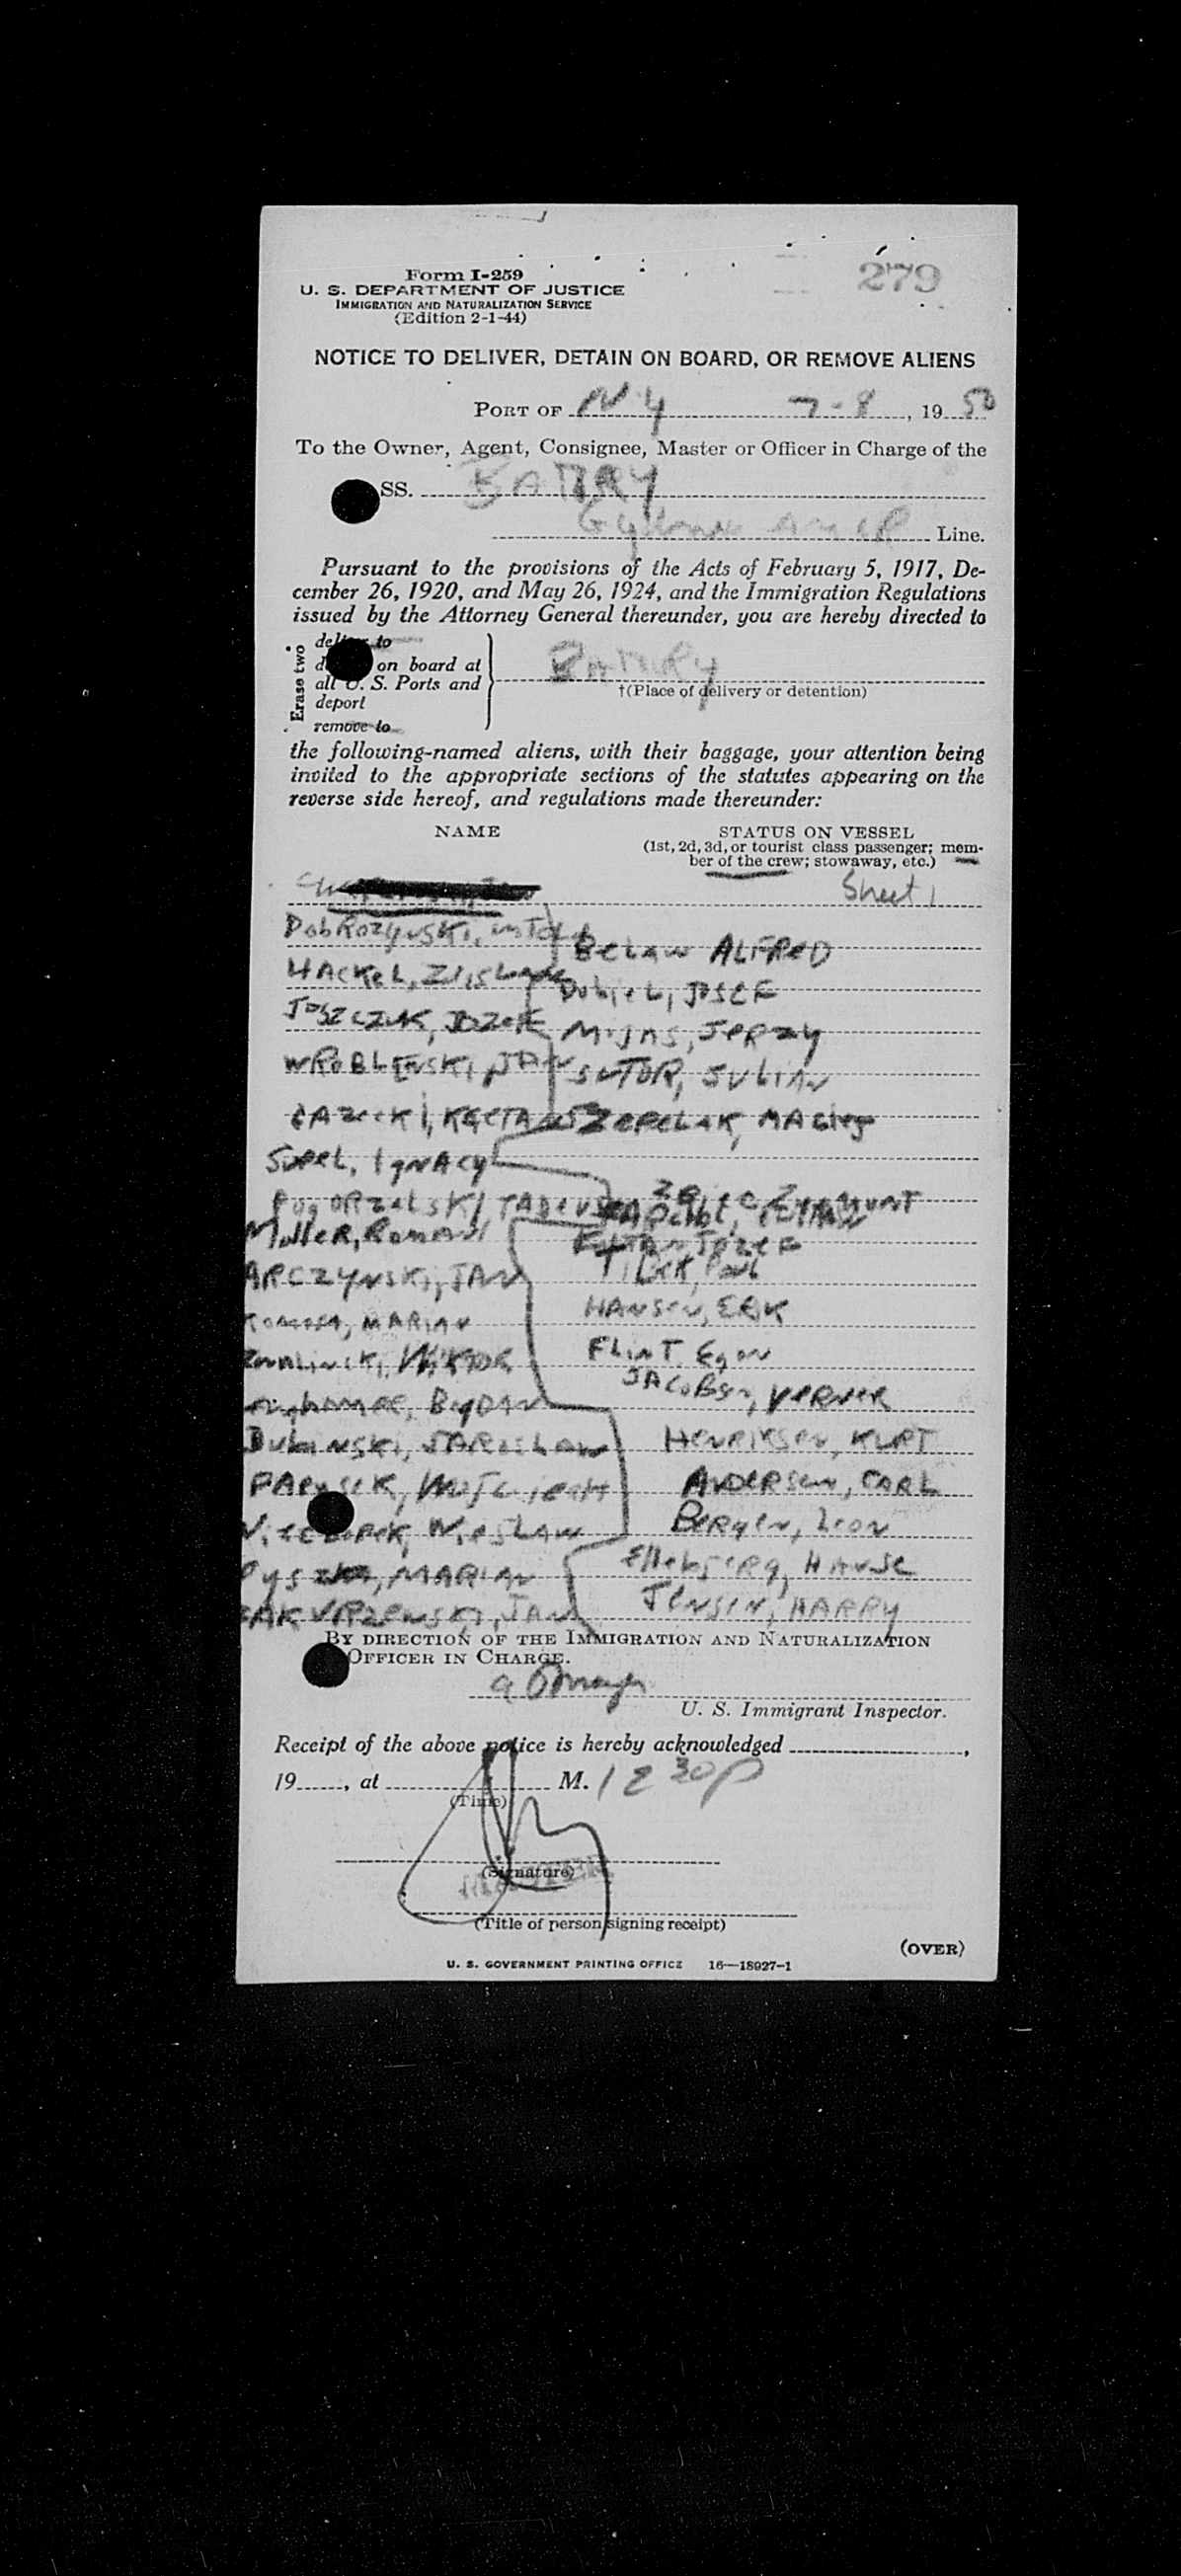 279
Form I-259
U. S. DEPARTMENT OF JUSTICE
IMMIGRATION AND NATURALIZATION SERVICE
(Edition 2-1-44)
NOTICE TO DELIVER, DETAIN ON BOARD, OR REMOVE ALIENS
PORT OF N.Y 7-8, 1950
To the Owner, Agent, Consignee, Master or Officer in Charge of the
SS. BATORY
Gdynia Amer Line.
Pursuant to the provisions of the Acts of February 5, 1917, De-
cember 26, 1920, and May 26, 1924, and the Immigration Regulations
issued by the Attorney General thereunder, you are hereby directed to
Erase two
deliver to
on board at
all U. S. Ports and
deport
remove to
†(Place of delivery or detention)
the following-named aliens, with their baggage, your attention being
invited to the appropriate sections of the statutes appearing on the
reverse side hereof, and regulations made thereunder:
NAME STATUS ON VESSEL
(1st, 2d, 3d, or tourist class passenger; mem-
ber of the crew; stowaway, etc.)
Sheet 1
DobRozynski, BeLaw ALFRED
HACKEL, Dubiel, JOSEF
JOSZCZUK, JOZEF Mijas, JERZY
WROBLEWSKI, JAN SUTOR, JULIAN
SZCPELAK, MACIEJ
SUPEL, IGNACY
POGORZELSKI TADEUSZ ZYGMUNT
MULLER, ROMAN JOZEF
ARCZYNSKI, JAN Paul
MARIAN HANSEN, ERIK
WIKTOR FLINT EGON
BOGDAN JACOBSEN, VERNER
DUBINSKI, JAROSLAW HENRIKSEN, KURT
ANDERSEN, CARL
WIESLAW BERGEN, LEON
MARIAN
JAN JENSEN, HARRY
BY DIRECTION OF THE IMMIGRATION AND NATURALIZATION
OFFICER IN CHARGE.
U. S. Immigrant Inspector.
Receipt of the above notice is hereby acknowledged,
19, at M. 12 30 p
(Time)
(Signature)
(Title of person signing receipt)
(OVER)
U. S. GOVERNMENT PRINTING OFFICE 16—18927-1